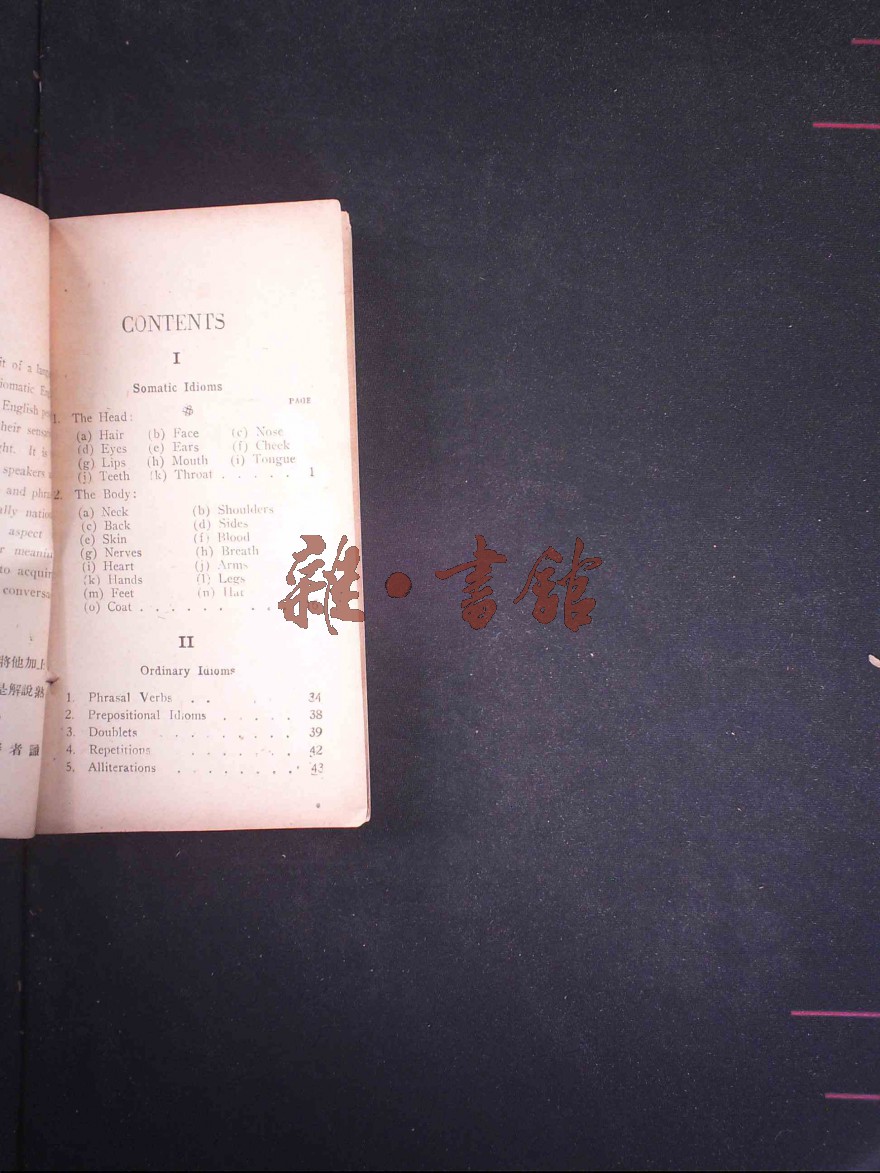 it of a
iomatic
English
their
ght. It is
speakers
and
ally
aspect
r
to
將他加上
是解說
者 謹
CONTENTS
I
Somatic Idioms
PAGE
1. The Head:
(a) Hair (b) Face (c) Nose
(d) Eyes (e) Ears (f) Cheek
(g) Lips (h) Mouth (i) Tongue
(j) Teeth (k) Throat . . . . . 1
2. The Body:
(a) Neck (b) Shoulders
(c) Back (d) Sides
(e) Skin (f) Blood
(g) Nerves (h) Breath
(i) Heart (j) Arms
(k) Hands (l) Legs
(m) Feet (n) Hat
(o) Coat . . . . . . . .
II
Ordinary Idioms
1. Phrasal Verbs . . . . 34
2. Prepositional Idioms . . . . . 38
3. Doublets . . . . . . . . 39
4. Repetitions . . . . . . 42
5. Alliterations . . . . . . . 43
雜•書館